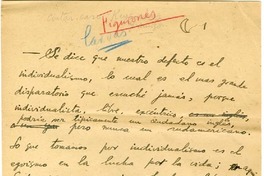 Figurones
1
— Se dice que nuestro defecto es el
individualismo, lo cual es el mas grande
disparatorio que escuché jamás, porque
individualista, libre, excéntrico,
podría ser típicamente un ciudadano inglés,
pero nunca un sudamericano.
Lo que tomamos por individualismo es el
egoísmo en la lucha por la vida;